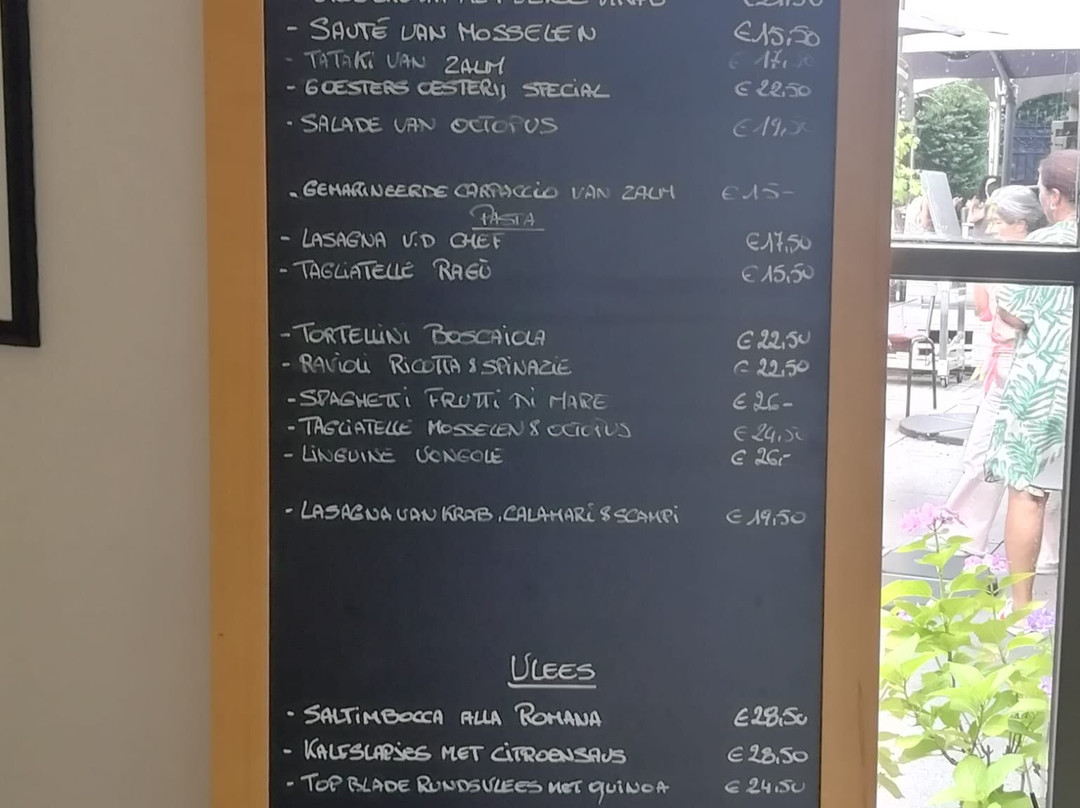 - SAUTÉ VAN MOSSELEN €15,50
- TATAKI VAN ZALM € 17,50
- 6 OESTERS OESTERIJ SPECIAL € 22,50
- SALADE VAN OCTOPUS € 19,50
- GEMARINEERDE CARPACCIO VAN ZALM € 15-
PASTA
- LASAGNA V.D CHEF €17,50
- TAGLIATELLE RAGÙ € 15,50
- TORTELLINI BOSCAIOLA € 22,50
- RAVIOLI RICOTTA & SPINAZIE € 22,50
- SPAGHETTI FRUTTI DI MARE € 26-
- TAGLIATELLE MOSSELEN & OCTOPUS € 24,50
- LINGUINE VONGOLE € 26,-
- LASAGNA VAN KRAB, CALAMARI & SCAMPI € 19,50
VLEES
- SALTIMBOCCA ALLA ROMANA €28,50
- KALFSLAPJES MET CITROENSAUS € 28,50
- TOP BLADE RUNDSVLEES MET QUINOA € 24,50